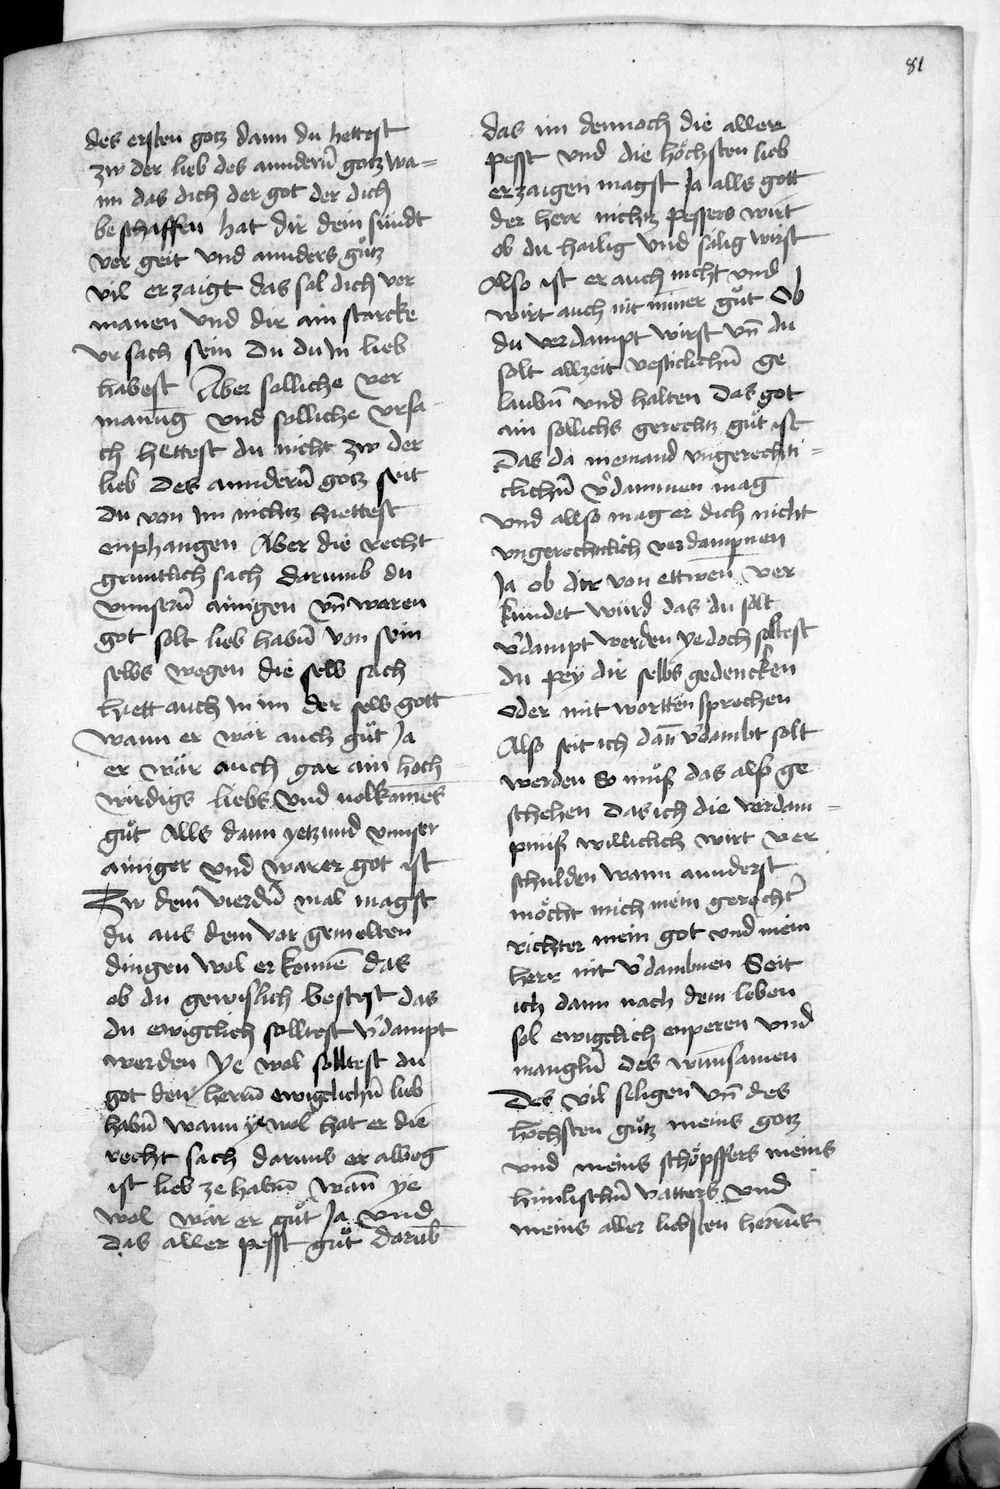 81
des ersten gotz dann du hettest
zw der lieb des annderñ gotz wa=
nn das dich der got der dich
beschaffen hat dir dein sündt
ver geit vnd annders gůtz
vil erzaigt das sol dich ver
manen vnd dir ain starcke
vrsach sein Du du in lieb
habest Aber solliche ver
manūg vnd solliche vrsa
ch hettest du nicht zw der
lieb des annderñ gotz seit
du von im nichtz hiettest
enphangen Aber die recht
gruntlich sach darumb du
vnnserñ ainigen vñ waren
got solt lieb habñ von sein
selbs wegen die selb sach
hiett auch in im der selb gott
wann er wär auch gůt Ja
er wär auch gar ain hoch
wirdigs liebs vnd volkomēs
gůt Alls dann yetzund vnnser
ainiger vnd warer got ist
Zw dem vierdñ mal magst
du aus dem vor gemelten
dingen wol erkennē das
ob du gewislich bestest das
du ewigclich solltest v̓dampt
werden ye wol solltest du
got den herrñ ewigclichñ lieb
habñ wann ye wol hat er die
recht sach darumb er albeg
ist lieb ze habñ wañ ye
wol wär er gůt Ja vnd
das aller pesst gůt darūb
das im dennoch die aller
pesst vnd die höchsten lieb
erzaigen magst Ja alls gott
der herr nichtz pessers wirt
ob du hailig vnd sälig wirst
Also ist er auch nicht vnd
wirt auch nit miner gůt Ob
du verdampt wirst vñ du
solt allzeit vesticlichñ ge
laubñ vnd halten das got
ain söllichs gerechtz gůt ist
Das da niemand vngerechti=
clichñ v̓dammen mag
vnd allso mag er dich nicht
vngerechtlich verdampnen
Ja ob dir von ettwen ver
kündet würd das du solt
v̓dampt werden yedoch soltest
du pey dir selbs gedencken
oder mit wortten sprechen
Also seit ich dañ v̓dambt solt
werden so můß das also ge
schehen das ich die verdam=
pnuß williclich wirt ver
schulden wann annderst
möcht mich mein gerecht̓
richter mein got vnd mein
herr nit v̓dambnen Seit
ich dann nach dem leben
sol ewigclich enperen vnd
manglñ des wunsamen
Des vil seligen vñ des
höchsten gůtz meins gotz
vnd meins schöpffers meins
himlischñ vatters vnd
meins aller liebsten herrñs